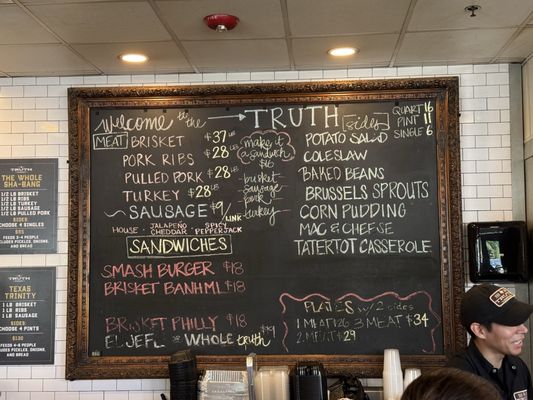 Welcome to the TRUTH
MEAT
BRISKET $37 LB
PORK RIBS $28 LB
PULLED PORK $28 LB
TURKEY $28 LB
SAUSAGE $9/LINK
HOUSE JALAPEÑO CHEDDAR SPICY PEPPERJACK
SANDWICHES
SMASH BURGER $18
BRISKET BANH MI $18
BRISKET PHILLY $18
EL JEFE OR WHOLE truth $19
make it a sandwich $16
brisket
sausage
pork
turkey
sides
QUART 16
PINT 11
SINGLE 6
POTATO SALAD
COLESLAW
BAKED BEANS
BRUSSELS SPROUTS
CORN PUDDING
MAC & CHEESE
TATERTOT CASSEROLE
PLATES w/ 2 sides
1 MEAT $26 3 MEAT $34
2 MEAT $29
THE WHOLE
SHA-BANG
1 LB BRISKET
1/2 LB RIBS
1/2 LB TURKEY
1/2 LB SAUSAGE
1/2 LB PULLED PORK
SIDES
4 SINGLES
BREAD
TEXAS
TRINITY
1 LB BRISKET
1 LB RIBS
1 LB SAUSAGE
SIDES
CHOOSE 4 PINTS
$130